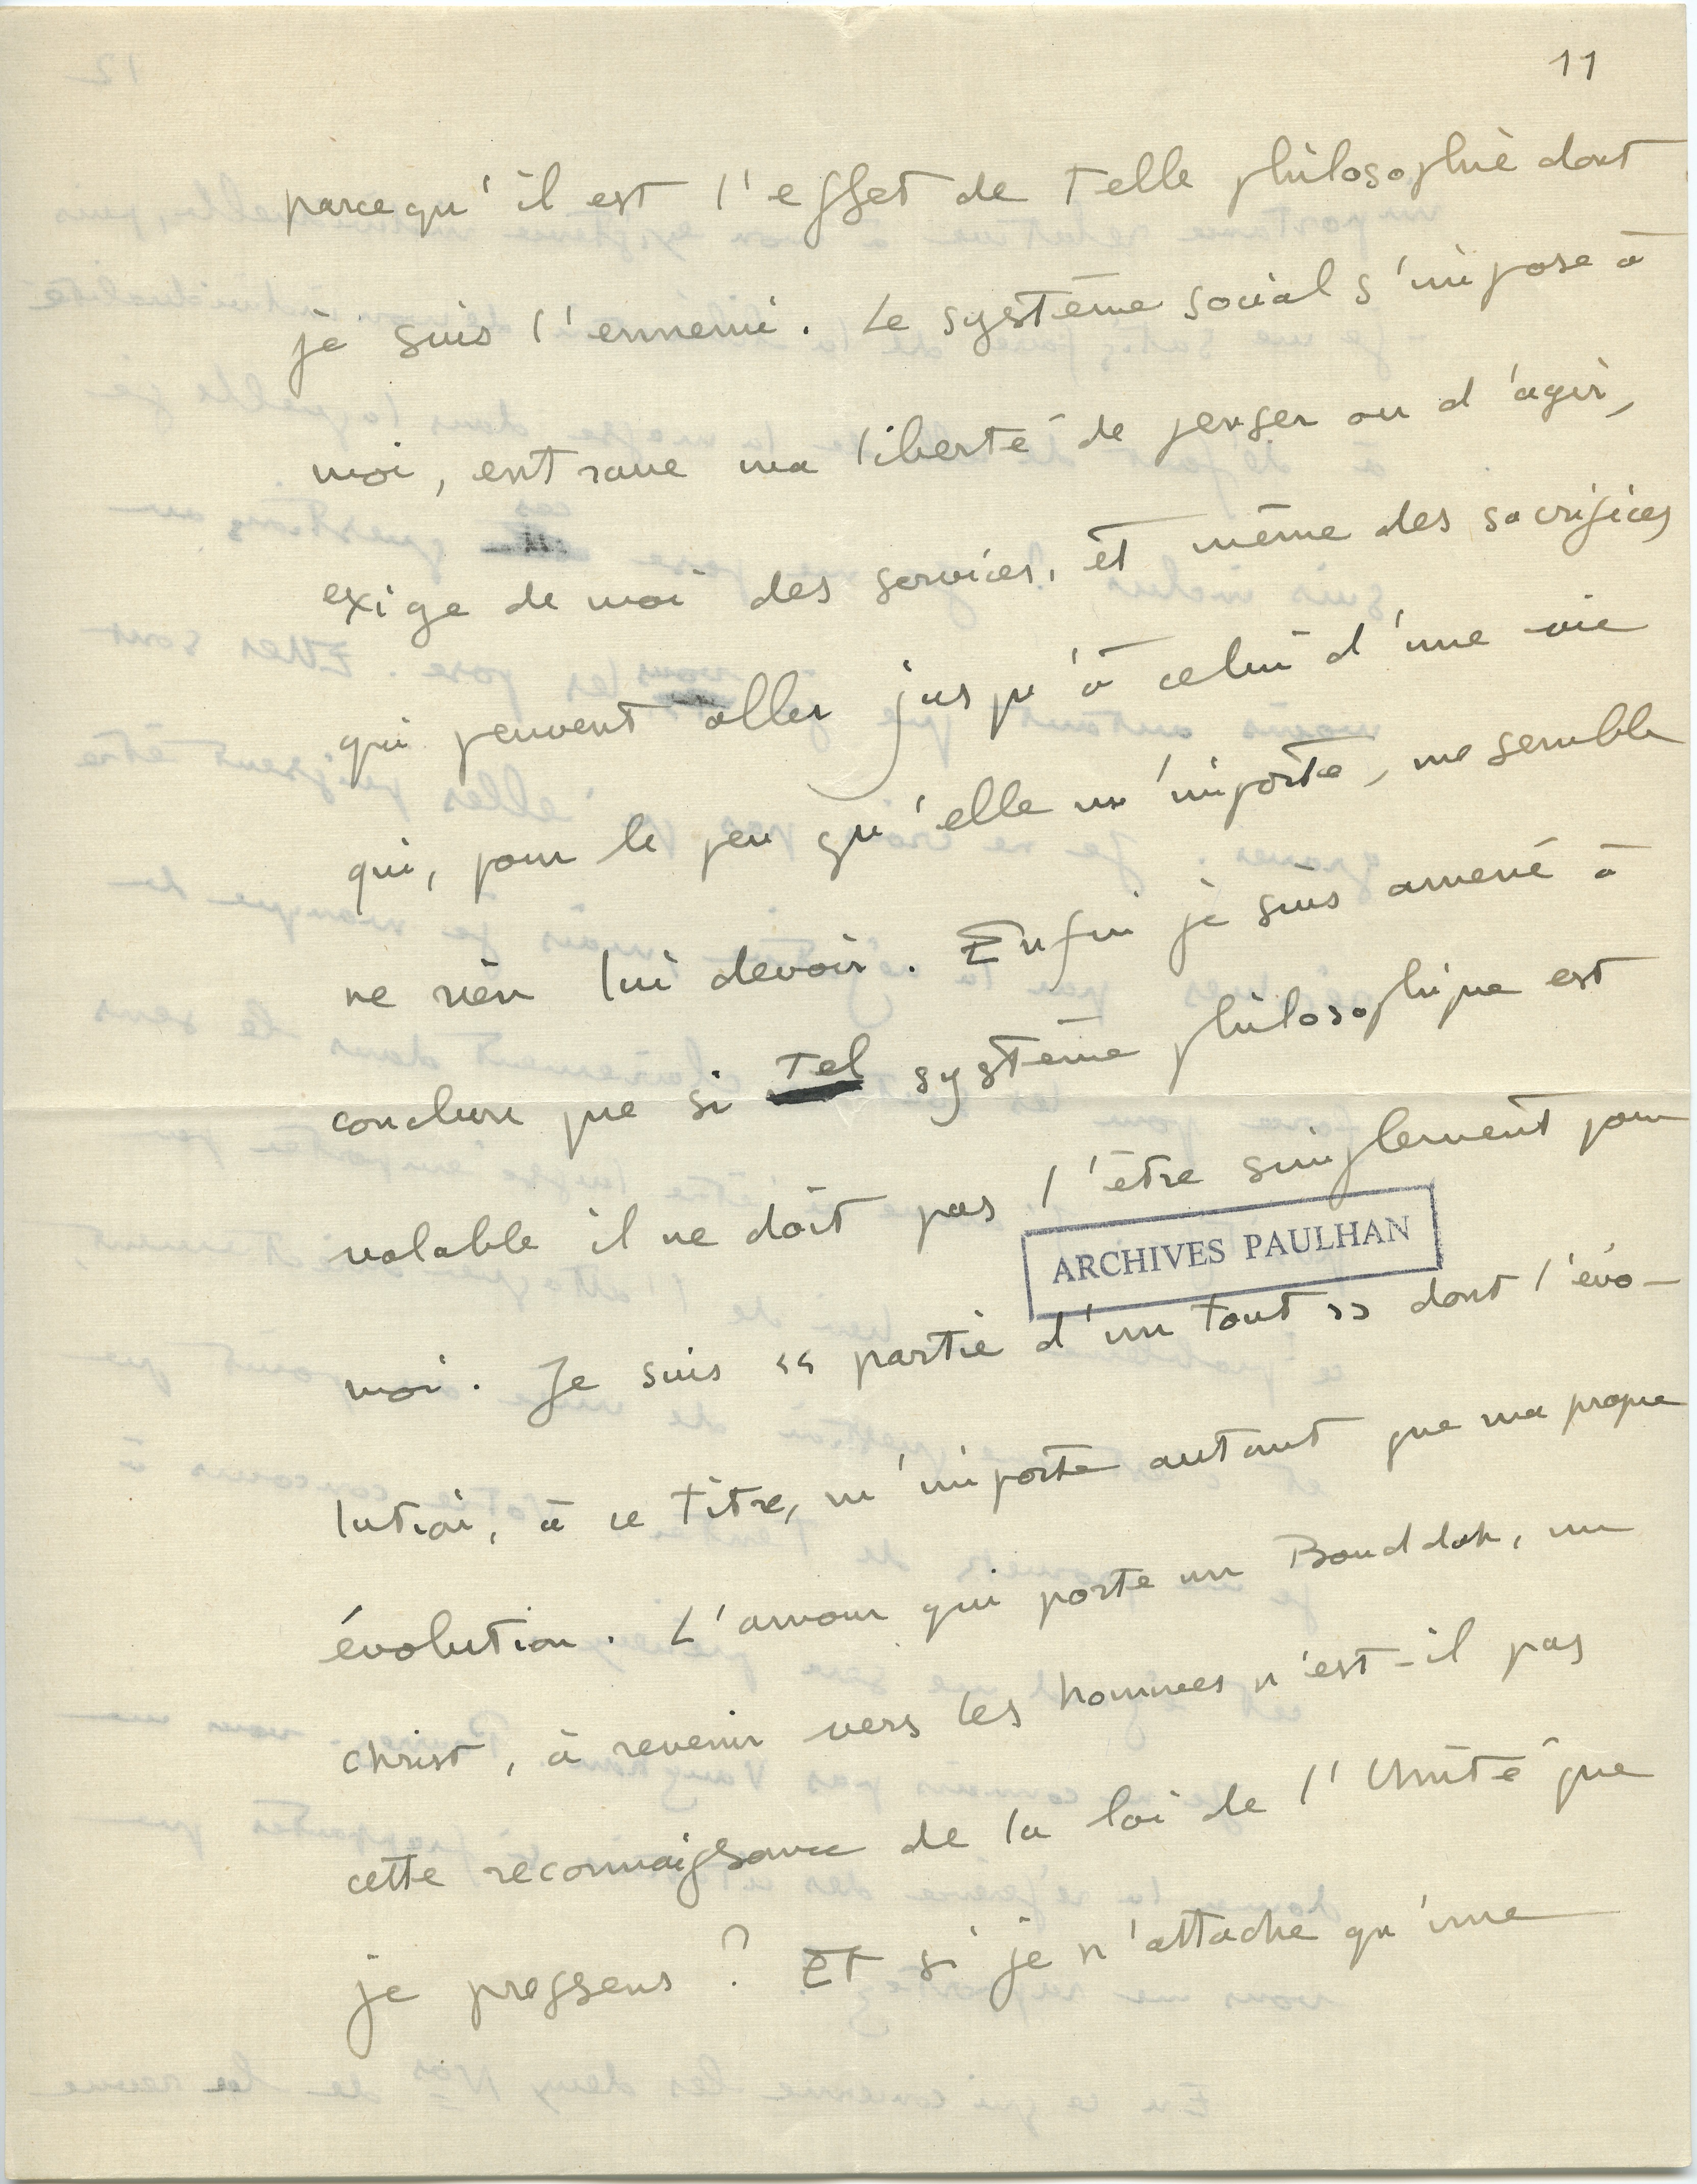 11
parcequ'il est l'effet de telle philosophie dont
je suis l'ennemi. Le système social s'impose à
moi, entrave ma liberté de penser ou d'agir,
exige de moi des services, et même des sacrifices
qui peuvent aller jusqu'à celui d'une vie
qui, pour le peu qu'elle m'importe, me semble
ne rien lui devoir. Enfin je suis amené à
conclure que si tel système philosophique est
valable il ne doit pas l'être simplement pour
ARCHIVES PAULHAN
moi. Je suis « partie d'un tout » dont l'évo-
lution, à ce titre, m'importe autant que ma propre
évolution. L'amour qui porte un Bouddah, un
christ, à revenir vers les hommes n'est-il pas
cette reconnaissance de la loi de l'Unité que
je pressens ? Et si je n'attache qu'une